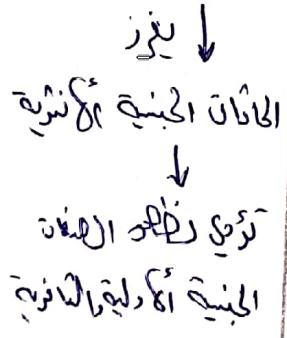 ↓ يفرز
الحاثات الجنسية الأنثوية
↓
تؤدي لظهور الصفات
الجنسية الأولية والثانوية